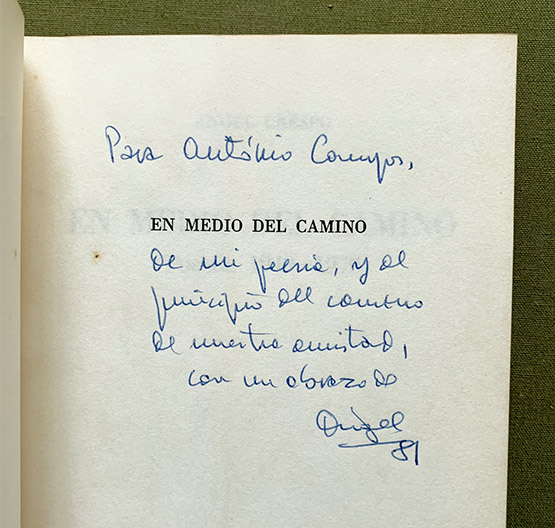 Para António Campos,
EN MEDIO DEL CAMINO
de mi poesía, y al
principio del camino
de nuestra amistad,
con un abrazo de
Ángel
81